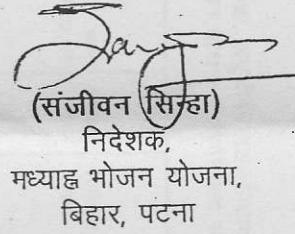 (संजीवन सिन्हा)
निदेशक,
मध्याह्न भोजन योजना,
बिहार, पटना